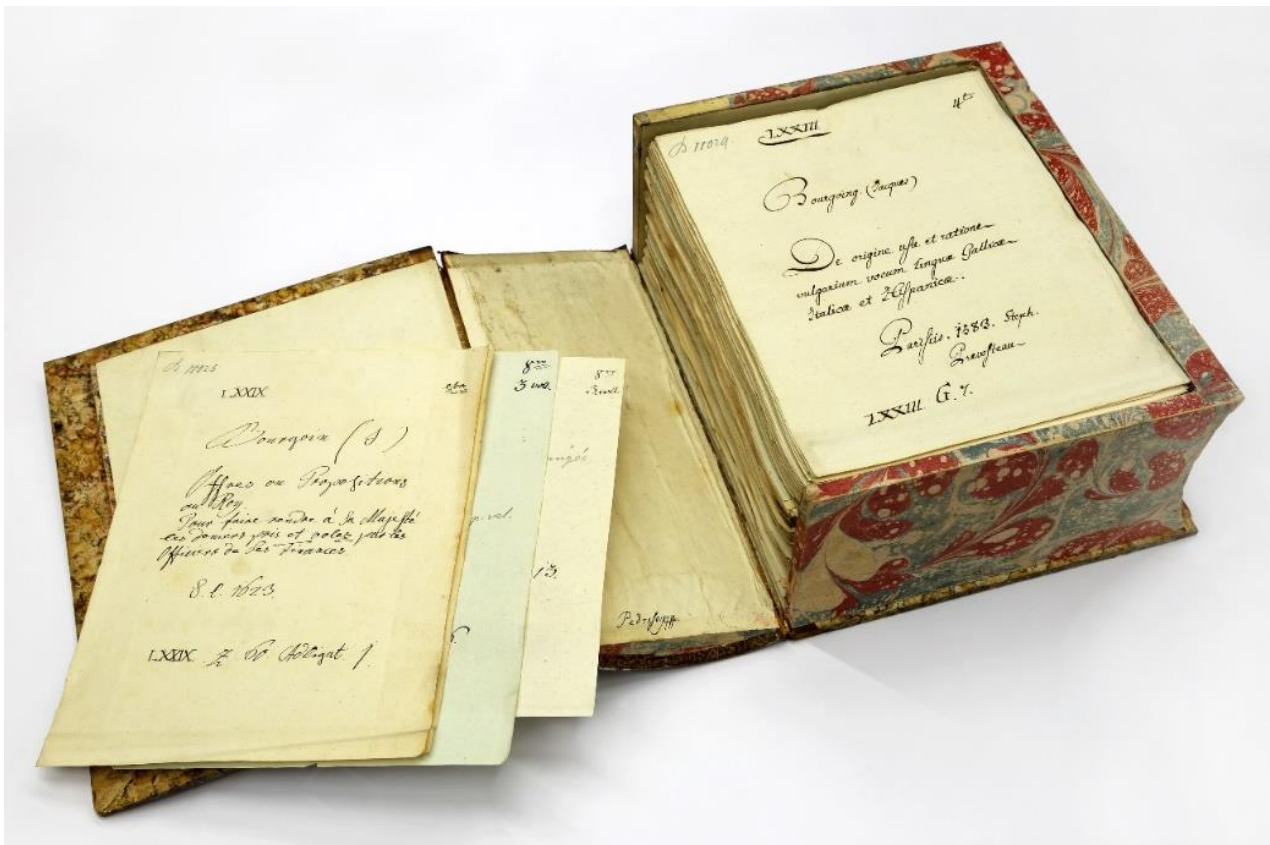 LXXIX
Bourgoin (S)
Offres ou Propositions
au Roy.
Pour faire rendre à Sa Majesté
les deniers pris et volez par les
Officiers de Ses Finances
S. l. 1623.
LXXIX. Z 66 Adligat 1.
8vo
3 vol.
8vo
3 vol.
p. vol.
13.
LXXIII
4to
Bourgoing (Jacques)
De origine usu et ratione
vulgarium vocum linguæ Gallicæ
Italicæ et Hispanicæ.
Parisiis. 1583. Steph.
Prevosteau
LXXIII G. 7.